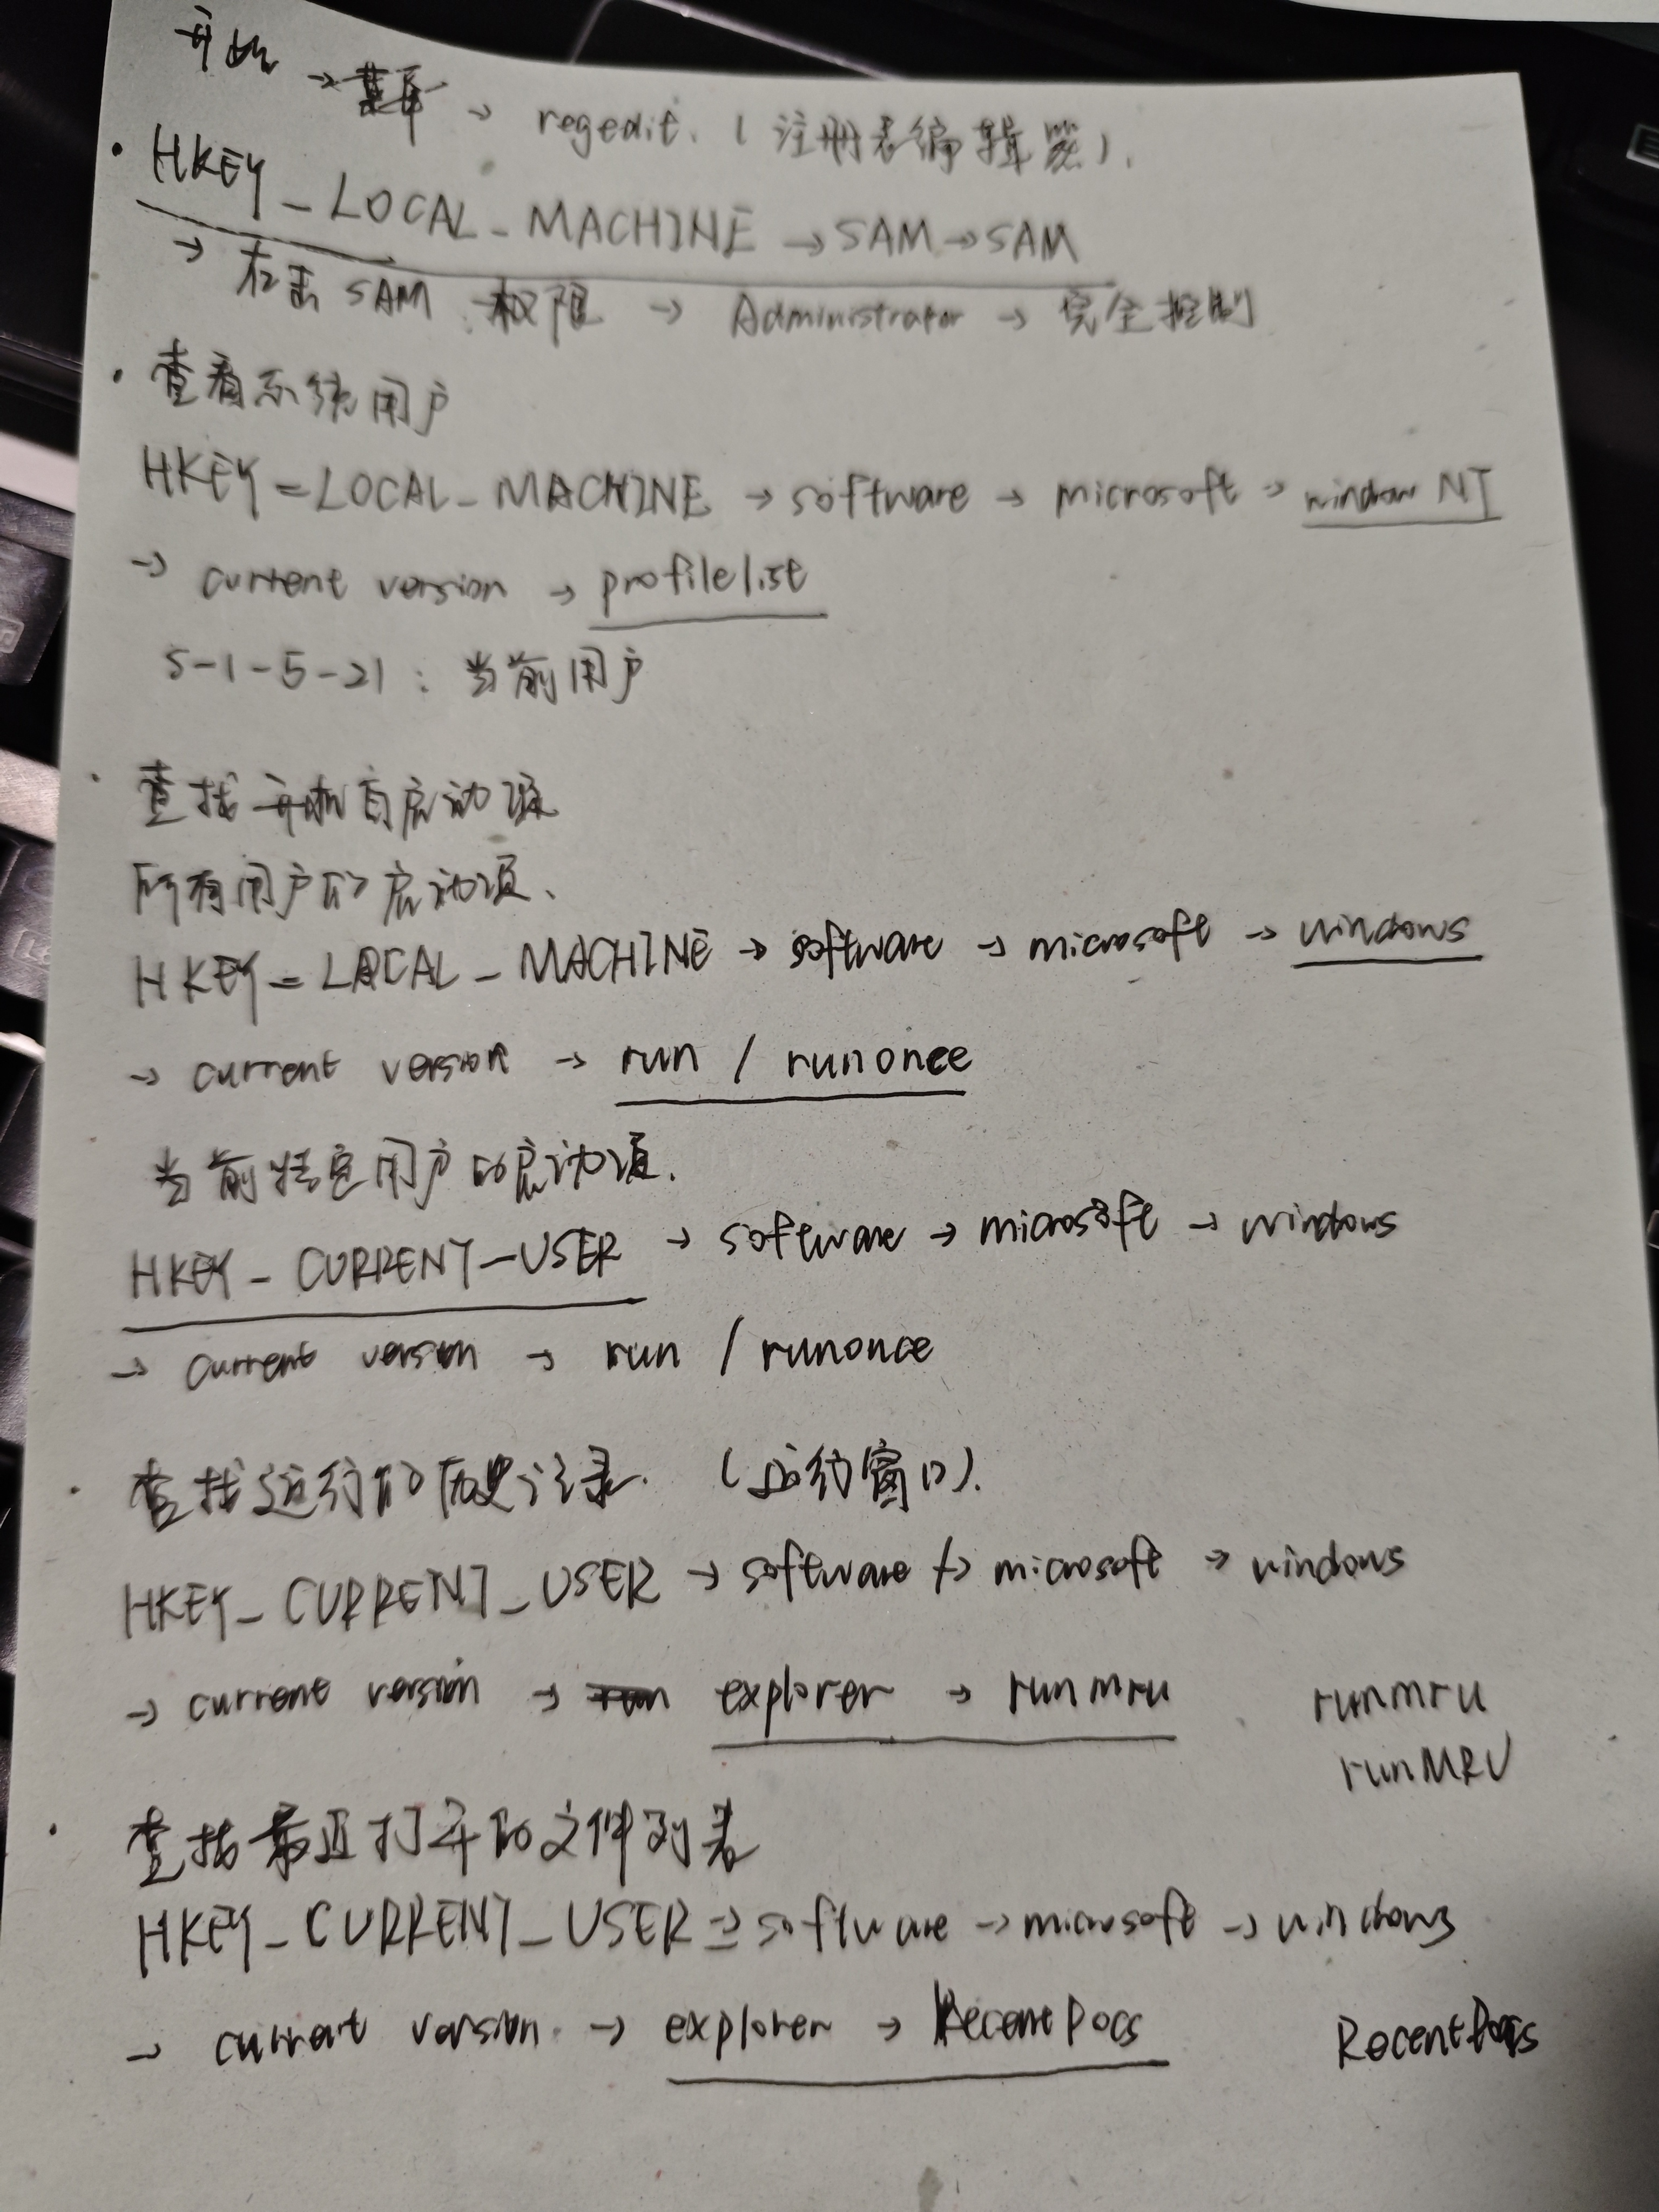 开机 → 菜单 → regedit. (注册表编辑器).
· HKEY_LOCAL_MACHINE → SAM → SAM
→ 右击 SAM 权限 → Administrator → 完全控制
· 查看系统用户
HKEY=LOCAL_MACHINE → software → microsoft → window NT
→ current version → profilelist
S-1-5-21 : 当前用户
· 查找开机自启动项
所有用户的启动项、
HKEY=LOCAL_MACHINE → software → microsoft → windows
→ current version → run / runonce
当前特定用户的启动项.
HKEY_CURRENT_USER → software → microsoft → windows
→ current version → run / runonce
· 查找运行的历史记录. (运行窗口).
HKEY_CURRENT_USER → software → microsoft → windows
→ current version → run explorer → runmru runmru
runMRU
· 查找最近打开的文件列表
HKEY_CURRENT_USER → software → microsoft → windows
→ current version. → explorer → RecentDocs RecentDocs